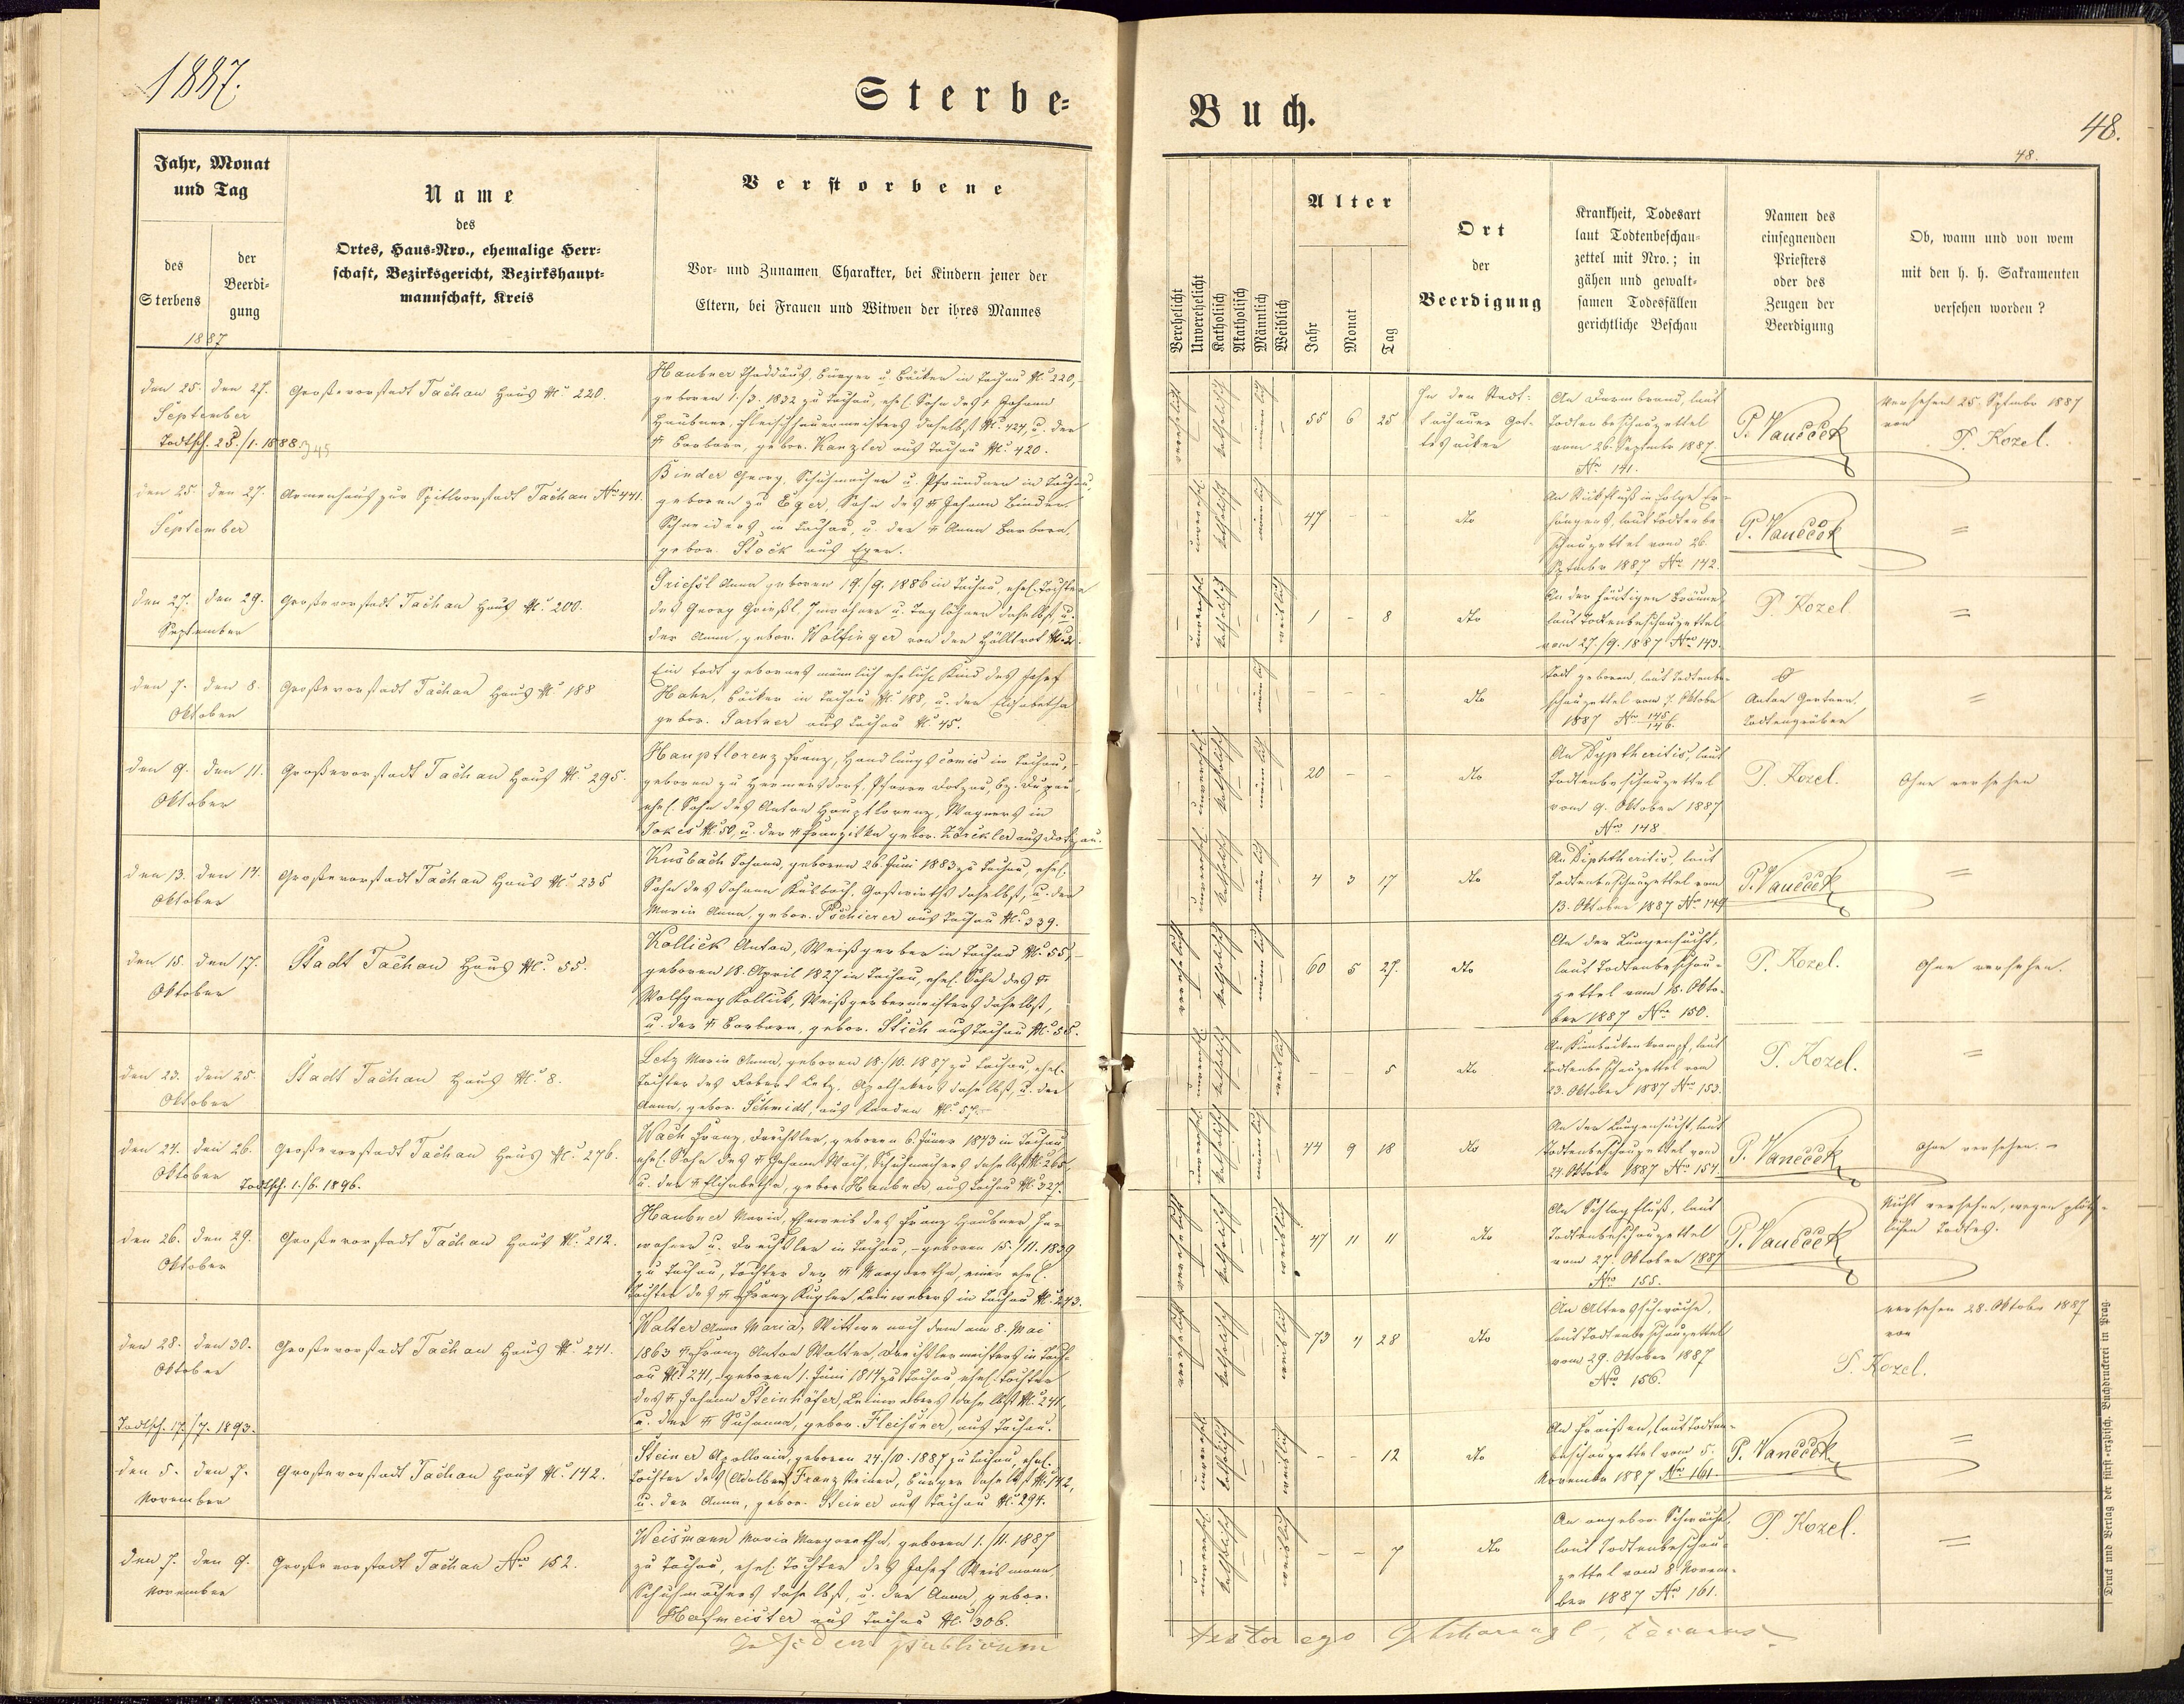 1887.
Sterbe-
Buch.
48.
48.
Jahr, Monat
und Tag
des
Sterbens
der
Beerdi-
gung
1887
Name
des
Ortes, Haus-Nro., ehemalige Herr-
schaft, Bezirksgericht, Bezirkshaupt-
mannschaft, Kreis
Verstorbene
Vor- und Zunamen, Charakter, bei Kindern jener der
Eltern, bei Frauen und Witwen der ihres Mannes
Verehelicht
Unverehelicht
Katholisch
Akatholisch
Männlich
Weiblich
Alter
Jahr
Monat
Tag
Ort
der
Beerdigung
Krankheit, Todesart
laut Todtenbeschau-
zettel mit Nro.; in
gähen und gewalt-
samen Todesfällen
gerichtliche Beschau
Namen des
einsegnenden
Priesters
oder des
Zeugen der
Beerdigung
Ob, wann und von wem
mit den h. h. Sakramenten
versehen worden?
den 25. den 27.
September
Todtsch. 25./1. 1888.
Großevorstadt Tachau Haus No 220.
Haubner Thaddäus, Bürger u. Bäcker in Tachau No 220,
geboren 1./3. 1832 zu Tachau, ehel. Sohn des † Johann
Haubner, Fleischhauermeisters daselbst No 424, u. der
† Barbara, gebor. Kanzler aus Tachau No 420.
verehelicht
katholisch
männlich
55 6 25
In den Stadt-
tachauer Got-
tesacker
An Darmbrand, laut
Todtenbeschauzettel
vom 26. Septembr 1887.
Nro 141.
P. Vaněček
Versehen 25. Septmbr 1887
von
P. Kozel.
den 25. den 27.
September
Armenhaus zur Spitlvorstadt Tachau Nro 441.
Binder Georg, Schuhmacher u. Pfründner in Tachau,
geboren zu Eger, Sohn des † Johann Binder,
Schneiders, in Tachau, u. der † Anna Barbara,
gebor. Stöck aus Eger.
unverehel.
katholisch
männlich
47 - -
dto
schauzettel vom 26.
Septmbr 1887 Nro 142.
P. Vaněček
=
den 27. den 29.
September
Großevorstadt Tachau Haus No 200.
Grießl Anna geboren 19./9. 1886 in Tachau, ehel. Tochter
des Georg Grießl Inwohner u. Taglöhner daselbst, u.
der Anna, gebor. Wolfinger von der
unverehel.
katholisch
weiblich
1 - 8
dto
An der häutigen Bräune
laut Todtenbeschauzettel
vom 27./9. 1887 Nro 143.
P. Kozel.
=
den 7. den 8.
Oktober
Großevorstadt Tachau Haus No 188
Ein todt gebornes männlich eheliches Kind des Josef
Hahn, Bäcker in Tachau No 188, u. der Elisabetha
gebor. Gartner aus Tachau No 45.
männlich
dto
Todt geboren, laut Todtenbe-
schauzettel vom 7. Oktober
1887 Nro 145/146.
Anton Gartner,
Todtengräber
=
den 9. den 11.
Oktober
Großevorstadt Tachau Haus No 295.
Hauptlorenz Franz, Handlungscomis in Tachau,
geboren zu Hermersdorf, Pfarre Dotzau, Bz. Duppau,
ehel. Sohn des Anton Hauptlorenz, Wagners in
Tokes No 50, u. der † Franziska gebor. Zörckler aus Dotzau.
unverehel.
katholisch
männlich
20 - -
dto
An Dyptheritis, laut
Todtenbeschauzettel
vom 9. Oktober 1887
Nro 148.
P. Kozel.
Ohne versehen
den 13. den 14.
Oktober
Großevorstadt Tachau Haus No 235
Kusbach Johann, geboren 26. Juni 1883 zu Tachau, ehel.
Sohn des Johann Kusbach, Gastwirths daselbst, u. der
Maria Anna, gebor. Pschierer aus Tachau No 339.
unverehel.
katholisch
männlich
4 3 17
dto
An Diphtheritis, laut
Todtenbeschauzettel vom
13. Oktober 1887 Nro 149
P. Vaněček
=
den 15. den 17.
Oktober
Stadt Tachau Haus No 55.
Kollick Anton, Weißgerber in Tachau No 55,
geboren 18. April 1827 in Tachau, ehel. Sohn des †
Wolfgang Kollick, Weißgerbermeisters daselbst,
u. der † Barbara, gebor. Stich aus Tachau No 58.
verehelicht
katholisch
männlich
60 5 27.
dto
An der Lungensucht,
laut Todtenbeschau-
zettel vom 18. Okto-
ber 1887 Nro 150.
P. Kozel.
Ohne versehen.
den 23. den 25.
Oktober
Stadt Tachau Haus No 8.
Letz Maria Anna, geboren 18./10. 1887 zu Tachau, ehel.
Tochter des Robert Letz, Apothekers daselbst, u. der
Anna, gebor. Schmidt, aus Kaaden No 57.
unverehel.
katholisch
weiblich
- - 5
dto
An Kinnbackenkrampf, laut
Todtenbeschauzettel vom
23. Oktober 1887 Nro 153.
P. Kozel.
=
den 24. den 26.
Oktober
Todtsch. 1./6. 1896.
Großevorstadt Tachau Haus No 276.
Wach Franz, Drechsler, geboren 6. Jäner 1843 in Tachau
ehel. Sohn des † Johann Wach, Schuhmachers daselbst No 265,
u. der † Elisabetha, gebor. Haubner, aus Tachau No 327.
unverehel.
katholisch
männlich
44 9 18
dto
An der Lungensucht, laut
Todtenbeschauzettel vom
24 Oktobr 1887 Nro 154.
P. Vaněček
Ohne versehen. -
den 26. den 29.
Oktober
Großevorstadt Tachau Haus No 212.
Haubner Maria, Eheweib des Franz Haubner In-
wohner u. Drechsler in Tachau, - geboren 15./11. 1839
zu Tachau, Tochter der † Margaretha, einer ehel.
Tochter des † Franz Kugler, Leinwebers in Tachau No 243.
verehelicht
katholisch
weiblich
47 11 11
dto
An Schlagfluß, laut
Todtenbeschauzettel
vom 27. Oktober 1887
Nro 155.
P. Vaněček
Nicht versehen, wegen plötz-
lichen Todtes.
den 28. den 30.
Oktober
Todtsch. 17./7. 1893.
Großevorstadt Tachau Haus No 241.
Walter Anna Maria, Wittwe nach dem am 8. Mai
1863 † Franz Anton Walter, Drechslermeisters in Tach-
au No 241, - geboren 1. Juni 1814 zu Tachau, ehel. Tochter
des † Johann Steinhöfer, Leinwebers daselbst No 241,
u. der † Susanna, gebor. Fleißner, aus Tachau.
verehelicht
katholisch
weiblich
73 4 28
dto
An Altersschwäche,
laut Todtenbeschauzettel
vom 29. Oktober 1887
Nro 156.
versehen 28. Oktober 1887
von
P. Kozel.
den 5. den 7.
November
Großevorstadt Tachau Haus No 142.
Steiner Apollonia, geboren 24./10. 1887 zu Tachau, ehel.
Tochter des (Adalbert) Franz Steiner, Bürger daselbst No 142,
u. der Anna, gebor. Steiner aus Tachau No 294.
unverehel.
katholisch
weiblich
- - 12
dto
An Fraißen, laut Todten-
beschauzettel vom 5.
November 1887 Nro 161.
P. Vaněček
=
den 7. den 9.
November
Großevorstadt Tachau Nro 152.
Weismann Maria Margaretha, geboren 1./11. 1887
zu Tachau, ehel. Tochter des Josef Weismann,
Schuhmachers daselbst, u. der Anna, gebor.
Hofmeister aus Tachau No 306.
unverehel.
katholisch
weiblich
- - 7
dto
An angebor. Schwäche,
laut Todtenbeschau-
zettel vom 8 Novem-
ber 1887 Nro 161.
P. Kozel.
=
In fidem publicam
testor ego
Druck und Verlag der fürst-erzbisch. Buchdruckerei in Prag.